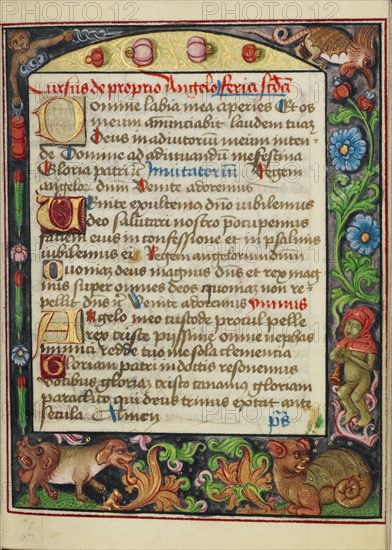 Cursus de proprio Angelo feria scda
Domine labia mea aperies Et os
meum annunciabit laudem tuaz
Deus in adiutoriu meum inten
de Domine ad adiuvandu me festina
Gloria patri Invitatoriu Regem
angelor dnm Venite adoremus
Venite exultemus dno iubilemus
deo salutari nostro preocupemus
faciem eius in confessione et in psalmis
iubilemus ei Regem angelorum dnm
Quoniaz deus magnus dns et rex mag
nus super omnes deos quoniaz non re
pellit dns Venite adoremus Ymnus
Angelo meo custode procul pelle
rex christe pyssime omne nephas
munda redde tuo me sola clementia
Gloriam patri indictis resonemus
votibus gloria christo canamus gloriam
paraclito qui deus trinus extat ante
secula Amen
ps